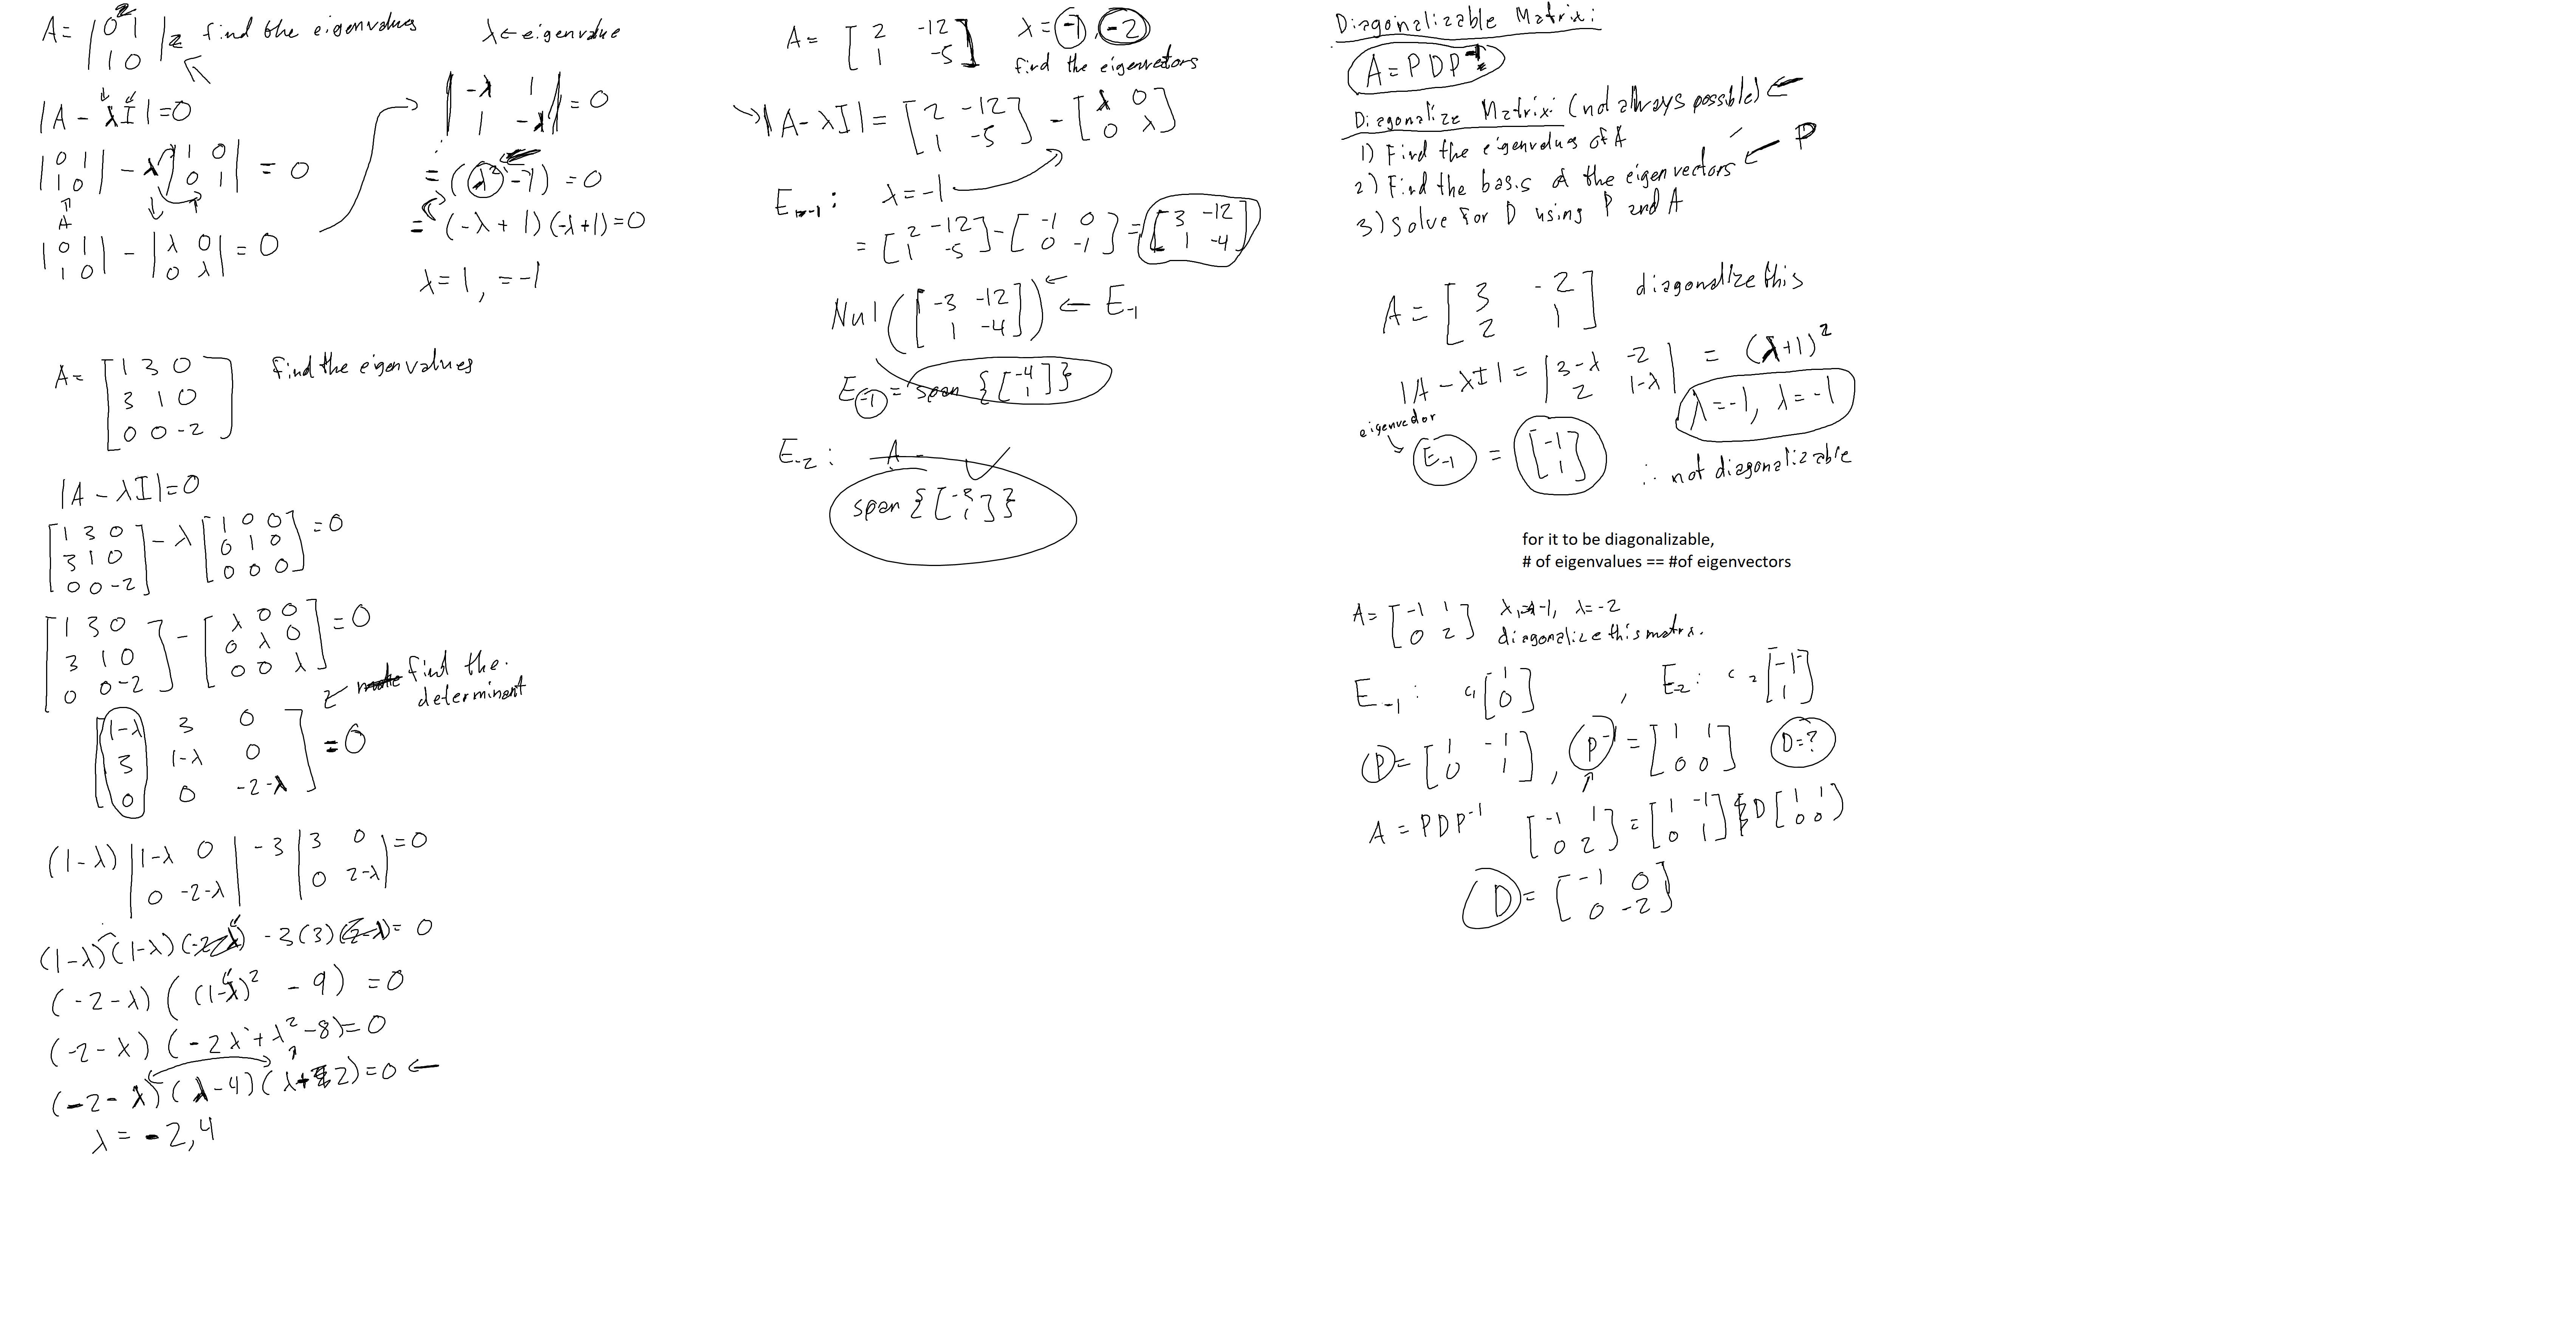 A = |0 1| find the eigenvalues
|1 0|
λ ← eigenvalue
|A - λI| = 0
|0 1| - λ|1 0| = 0
|1 0| |0 1|
A
|0 1| - |λ 0| = 0
|1 0| |0 λ|
|-λ 1| = 0
|1 -λ|
= (λ² - 1) = 0
= (-λ + 1)(-λ + 1) = 0
λ = 1, = -1
A = [1 3 0] find the eigenvalues
[3 1 0]
[0 0 -2]
|A - λI| = 0
[1 3 0] - λ [1 0 0] = 0
[3 1 0] [0 1 0]
[0 0 -2] [0 0 0]
[1 3 0] - [λ 0 0] = 0
[3 1 0] [0 λ 0]
[0 0 -2] [0 0 λ]
find the
determinant
[1-λ 3 0]
[3 1-λ 0] = 0
[0 0 -2-λ]
(1-λ) |1-λ 0| - 3 |3 0| = 0
|0 -2-λ| |0 2-λ|
(1-λ)(1-λ)(-2-λ) - 3(3)(2-λ) = 0
(-2-λ)((1-λ)² - 9) = 0
(-2-λ)(-2λ + λ² - 8) = 0
(-2-λ)(λ-4)(λ+2) = 0 ←
λ = -2, 4
A = [2 -12] λ = -1, -2
[1 -5] find the eigenvectors
|A - λI| = [2 -12] - [λ 0]
[1 -5] [0 λ]
E-1: λ = -1
= [2 -12] - [-1 0] = [3 -12]
[1 -5] [0 -1] [1 -4]
Nul([-3 -12]) ← E-1
[1 -4]
E-1 = span {[-4]}
[1]
E-2: A -
span {[-3]}
[1]
Diagonalizable Matrix:
A = PDP⁻¹
Diagonalize Matrix: (not always possible) ←
1) Find the eigenvalues of A
2) Find the basis of the eigenvectors ← P
3) Solve for D using P and A
A = [3 -2] diagonalize this
[2 1]
|A - λI| = |3-λ -2| = (λ+1)²
|2 1-λ|
λ = -1, λ = -1
eigenvector
E-1 = [-1]
[1]
∴ not diagonalizable
for it to be diagonalizable,
# of eigenvalues == #of eigenvectors
A = [-1 1] λ = -1, λ = -2
[0 2] diagonalize this matrix.
E-1: c₁[1] , E2: c₂[-1]
[0] [1]
P = [1 -1], P⁻¹ = [1 1] D = ?
[0 1] [0 0]
A = PDP⁻¹ [-1 1] = [1 -1] D [1 1]
[0 2] [0 1] [0 0]
D = [-1 0]
[0 -2]